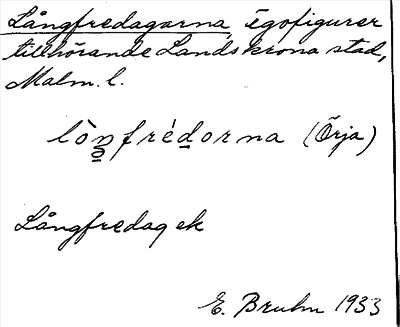 Långfredagarna, egofigurer
tillhörande Landskrona stad,
Malm. l.
lòn̯frédorna (Örja)
Långfredag ek
E. Bruhn 1933